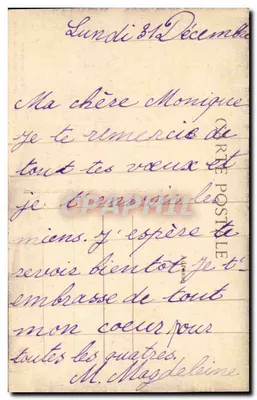 Lundi 31 Décembre
Ma chère Monique
Je te remercie de
tout tes vœux et
je t'envoie les
miens. J'espère te
revoir bientot. Je t'
embrasse de tout
mon coeur pour
toutes les quatres.
M. Magdeleine
CARTE POSTALE
CPAPHIL